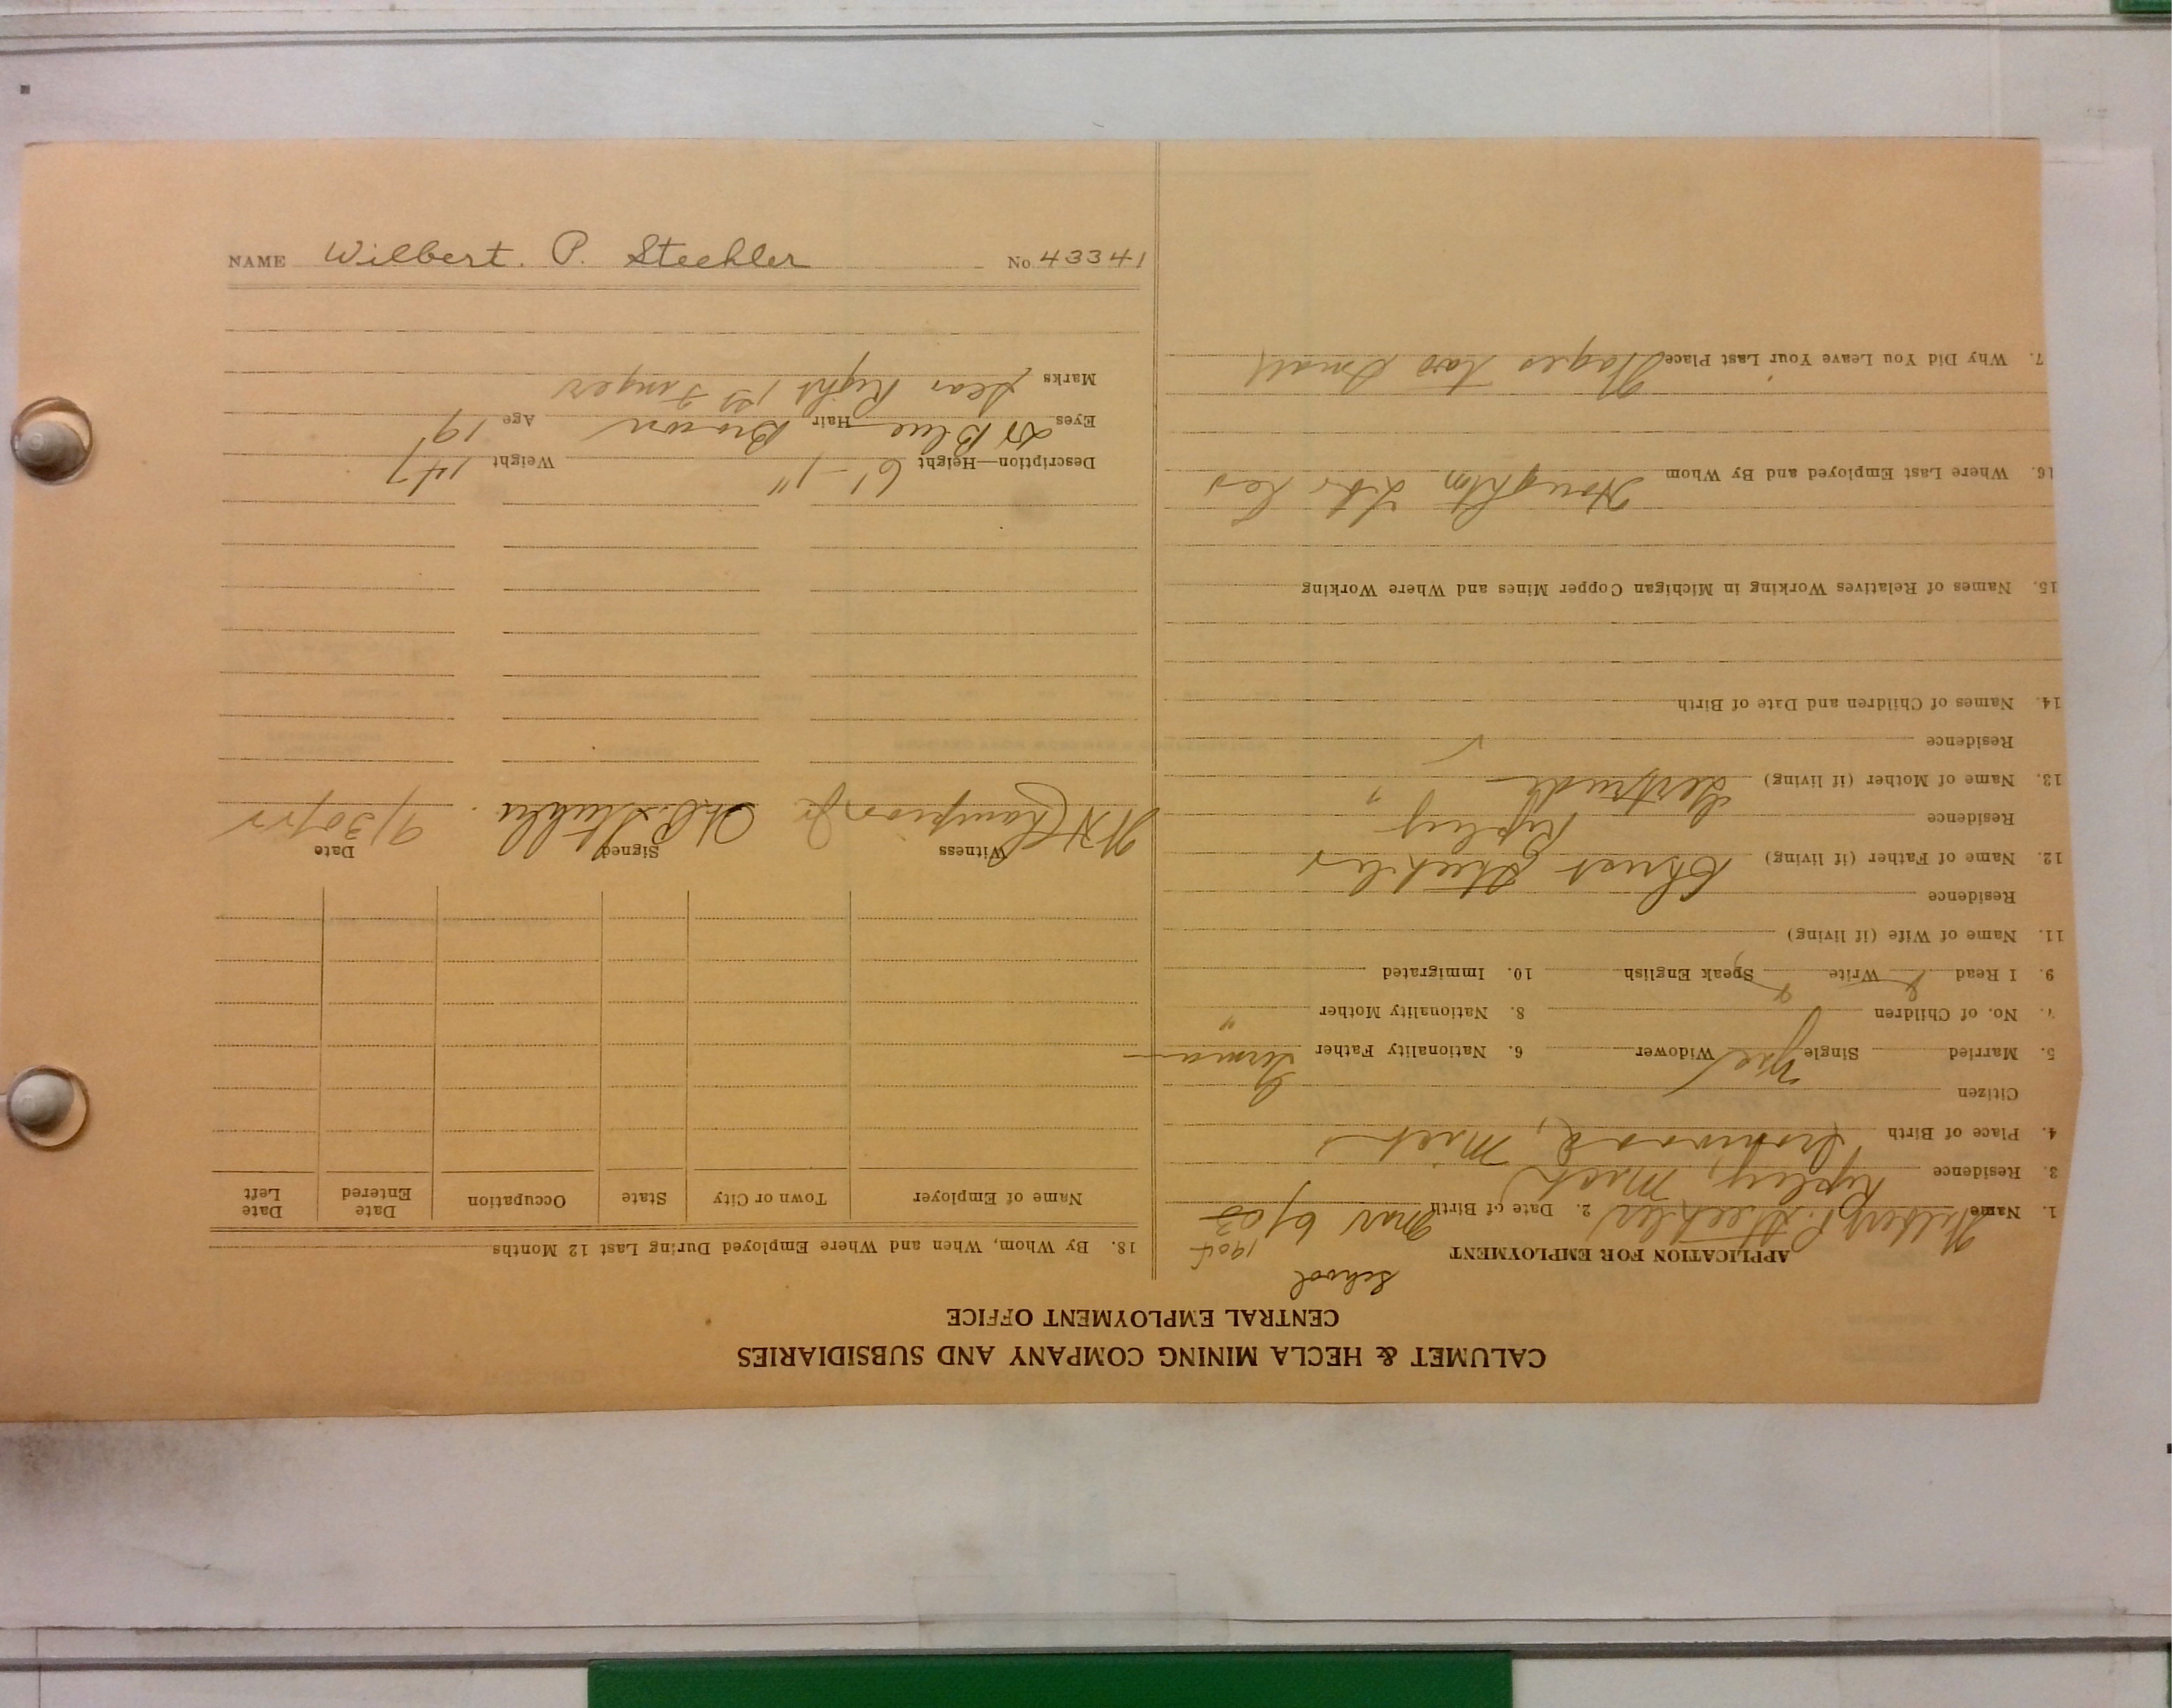 NAME Wilbert. P. Steehler No. 43341
CALUMET & HECLA MINING COMPANY AND SUBSIDIARIES
CENTRAL EMPLOYMENT OFFICE
School
APPLICATION FOR EMPLOYMENT
1904
1. Name Wilbert P. Steehler 2. Date of Birth Mar 6/03
3. Residence Ripley, Mich
4. Place of Birth Ironwood, Mich
Citizen
5. Married Single yes Widower 6. Nationality Father German
7. No. of Children 8. Nationality Mother "
9. I Read Write Speak English 10. Immigrated
11. Name of Wife (if living)
Residence
12. Name of Father (if living) Christ Steehler
Residence Ripley
13. Name of Mother (if living) Gertrude "
Residence
14. Names of Children and Date of Birth
15. Names of Relatives Working in Michigan Copper Mines and Where Working
16. Where Last Employed and By Whom Houghton
7. Why Did You Leave Your Last Place Wages too Small
18. By Whom, When and Where Employed During Last 12 Months
Name of Employer Town or City State Occupation Date Entered Date Left
Witness Signed Date
W H Champion Jr W.P. Steehler. 9/30/22
Description—Height 6'-1" Weight 147
Eyes Blue Hair Brown Age 19
Marks Scar Right 1st Finger